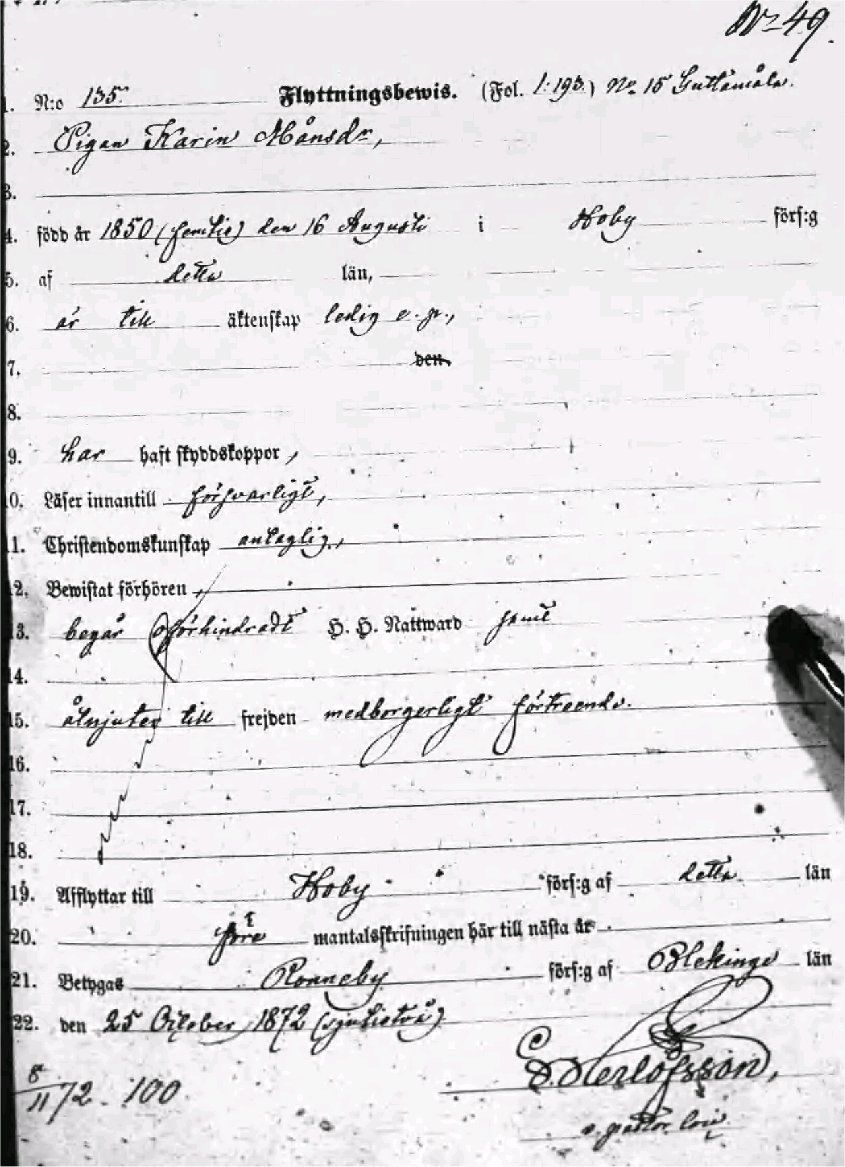 No 49.
1. N:o 135. Flyttningsbewis. (Fol. 1.193.) No 15 Guttamåla.
2. Pigan Karin Månsdr,
3.
4. född år 1850 (femtio) den 16 Augusti i Hoby förs:g
5. af detta län,
6. är till äktenskap ledig e. p.,
7. den
8.
9. har haft skyddskoppor,
10. Läser innantill försvarligt,
11. Christendomskunskap antaglig,
12. Bewistat förhören,
13. begår oförhindradt H. H. Nattward samt
14.
15. åtnjuter till frejden medborgerligt förtroende.
16.
17.
18.
19. Afflyttar till Hoby förs:g af detta län
20. före mantalsskrifningen här till nästa år.
21. Betygas Ronneby förs:g af Blekinge län
22. den 25 October 1872 (sjutiotvå)
8/11 72. 100. Herlofsson,
pastor. loci